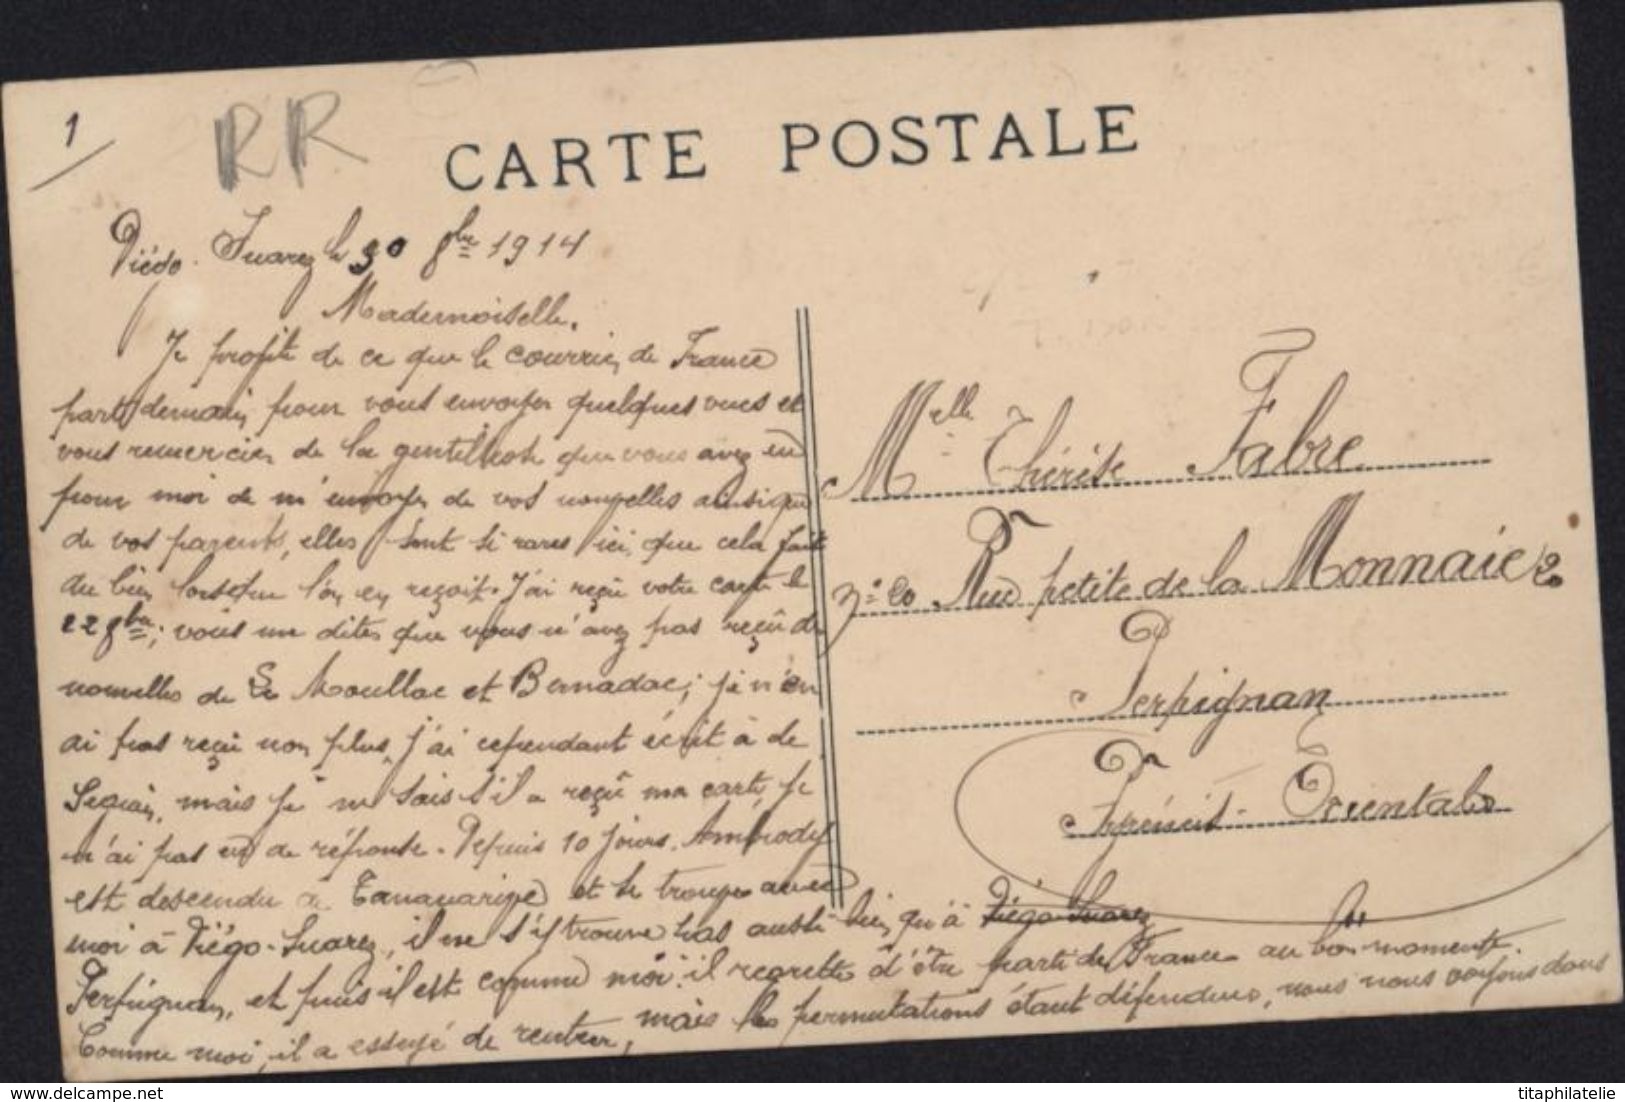 1
RR
CARTE POSTALE
Diégo-Suarez le 30 8bre 1914
Mademoiselle,
Je profite de ce que le courrier de France
part demain pour vous envoyer quelques vues et
vous remercier de la gentillesse que vous avez eu
pour moi de m'envoyer de vos nouvelles ainsi que
de vos parents, elles sont si rares ici, que cela fait
du bien lorsque l'on en reçoit. J'ai reçu votre carte le
22 8bre; vous me dites que vous n'avez pas reçu de
nouvelles de Moullac et Bernadac; je n'en
ai pas reçu non plus, j'ai cependant écrit à de
mais je ne sais s'il a reçu ma carte, je
n'ai pas eu de réponse. Depuis 10 jours,
est descendu à Tananarive et se trouve avec
moi à Diégo-Suarez, il ne s'y trouve pas aussi bien qu'à Diégo-Suarez
Perpignan, et puis il est comme moi: il regrette d'être parti de France au bon moment.
Comme moi, il a essayé de rentrer, mais les permutations étant défendues, nous nous voyons dans
Melle Thérèse Fabre
N° 20 Rue petite de la Monnaie 20
Perpignan
Pyrénées-Orientales
titaphilatelie
delcampe.net